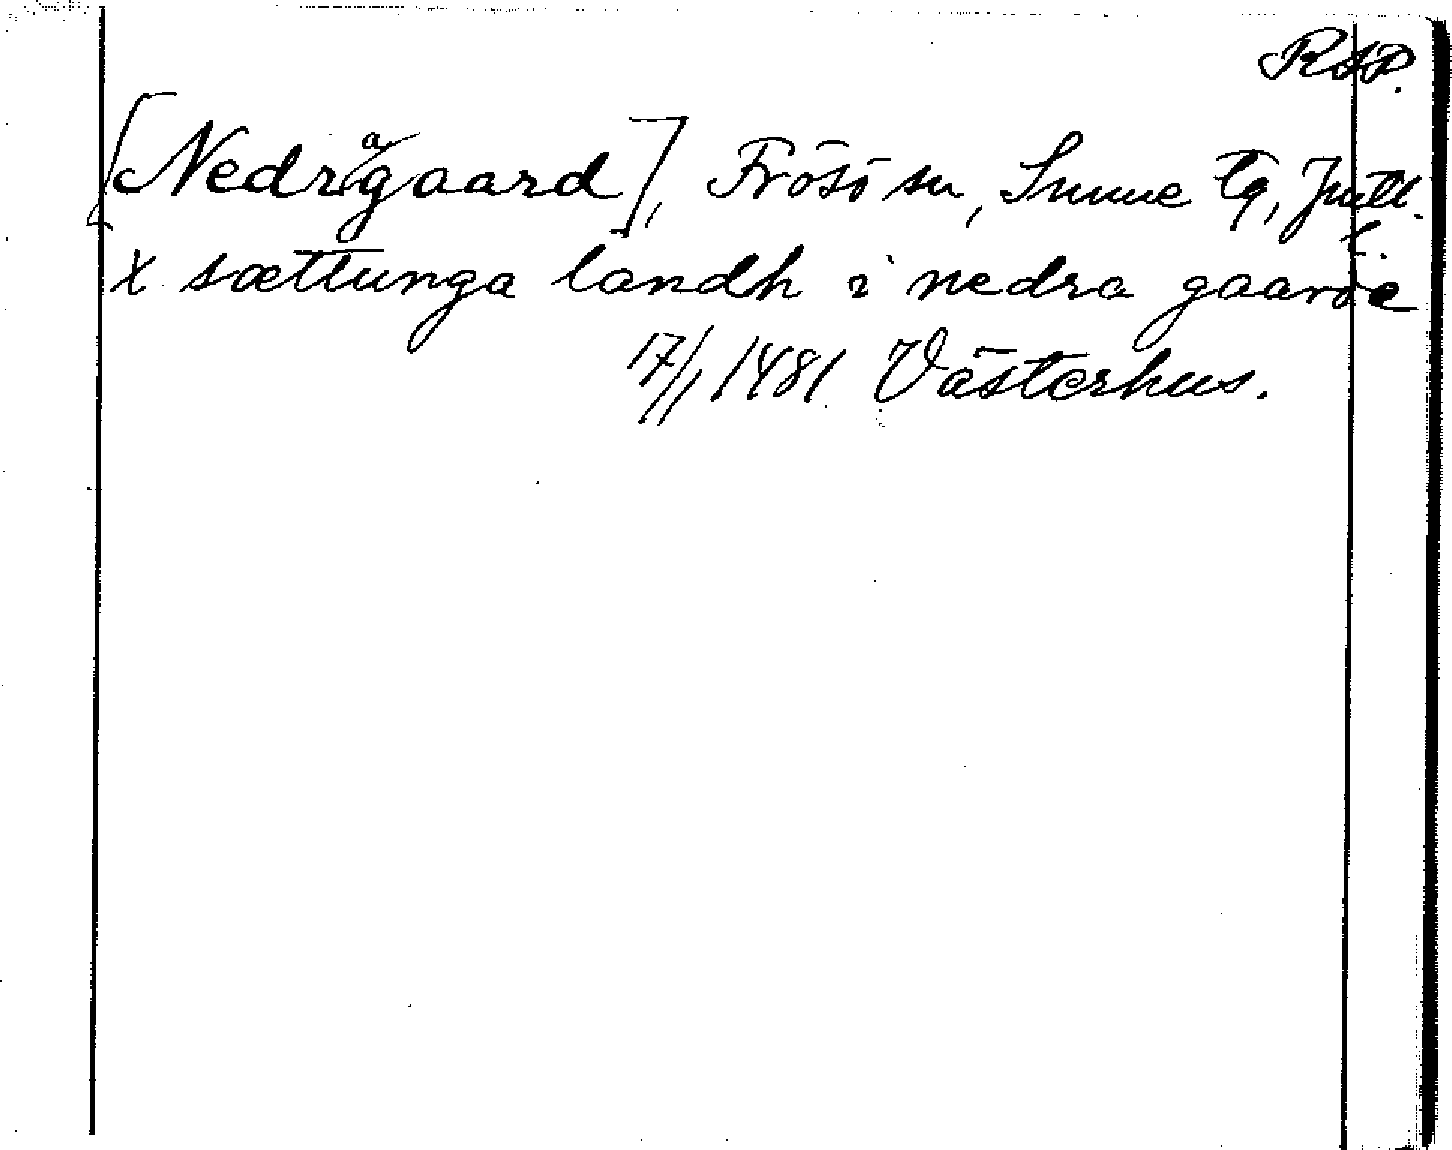 RAP.
[Nedragaard], Frösö sn, Sunne tg, Jmtl.
l.
X sættunga landh i nedra gaarde
17/1 1481 Västerhus.